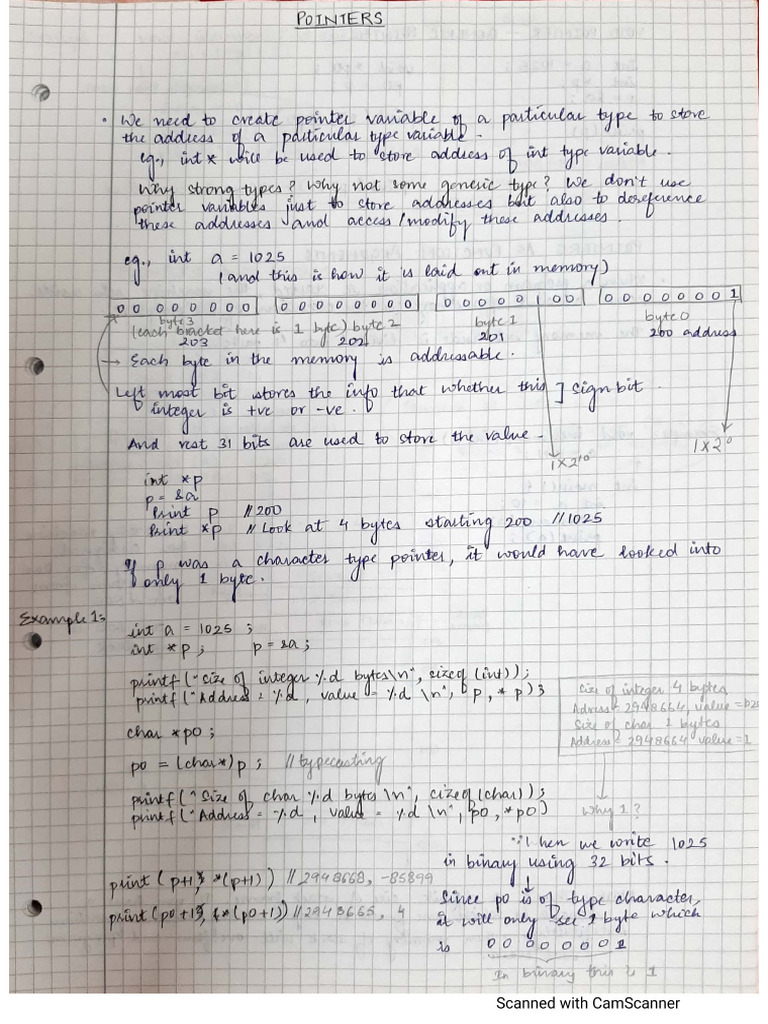 POINTERS
• We need to create pointer variable of a particular type to store
the address of a particular type variable.
eg., int* will be used to store address of int type variable.
Why strong types? Why not some generic type? We don't use
pointer variables just to store addresses but also to dereference
these addresses and access/modify these addresses.
eg., int a = 1025
(and this is how it is laid out in memory)
0 0 0 0 0 0 0 0 0 0 0 0 0 0 0 0 0 0 0 0 0 1 0 0 0 0 0 0 0 0 0 1
byte3 byte 2 byte 1 byte 0
(each bracket here is 1 byte)
203 202 201 200 address
→ Each byte in the memory is addressable.
Left most bit stores the info that whether this ] sign bit.
integer is +ve or -ve.
And rest 31 bits are used to store the value.
1×2¹⁰ 1×2⁰
int *p
p = &a
Print p //200
Print *p // Look at 4 bytes starting 200 //1025
If p was a character type pointer, it would have looked into
only 1 byte.
Example 1:
int a = 1025 ;
int *p ; p = &a ;
printf ("Size of integer %d bytes\n", sizeof (int));
printf ("Address = %d, value = %d \n", p, *p);
Size of integer 4 bytes
Adress = 2948664, value =
Size of char 1 bytes
Address = 2948664 value = 1
char *p0 ;
p0 = (char*)p ; //typecasting
printf ("Size of char %d bytes\n", sizeof(char));
printf ("Address = %d, value = %d \n", p0, *p0)
Why 1?
∵ When we write 1025
in binary using 32 bits.
print ( p+1, *(p+1) ) // 2948668, -85899
print (p0+1, *(p0+1)) //2948665, 4
Since p0 is of type character,
it will only see 1 byte which
is 0 0 0 0 0 0 0 1
In binary this is 1
Scanned with CamScanner